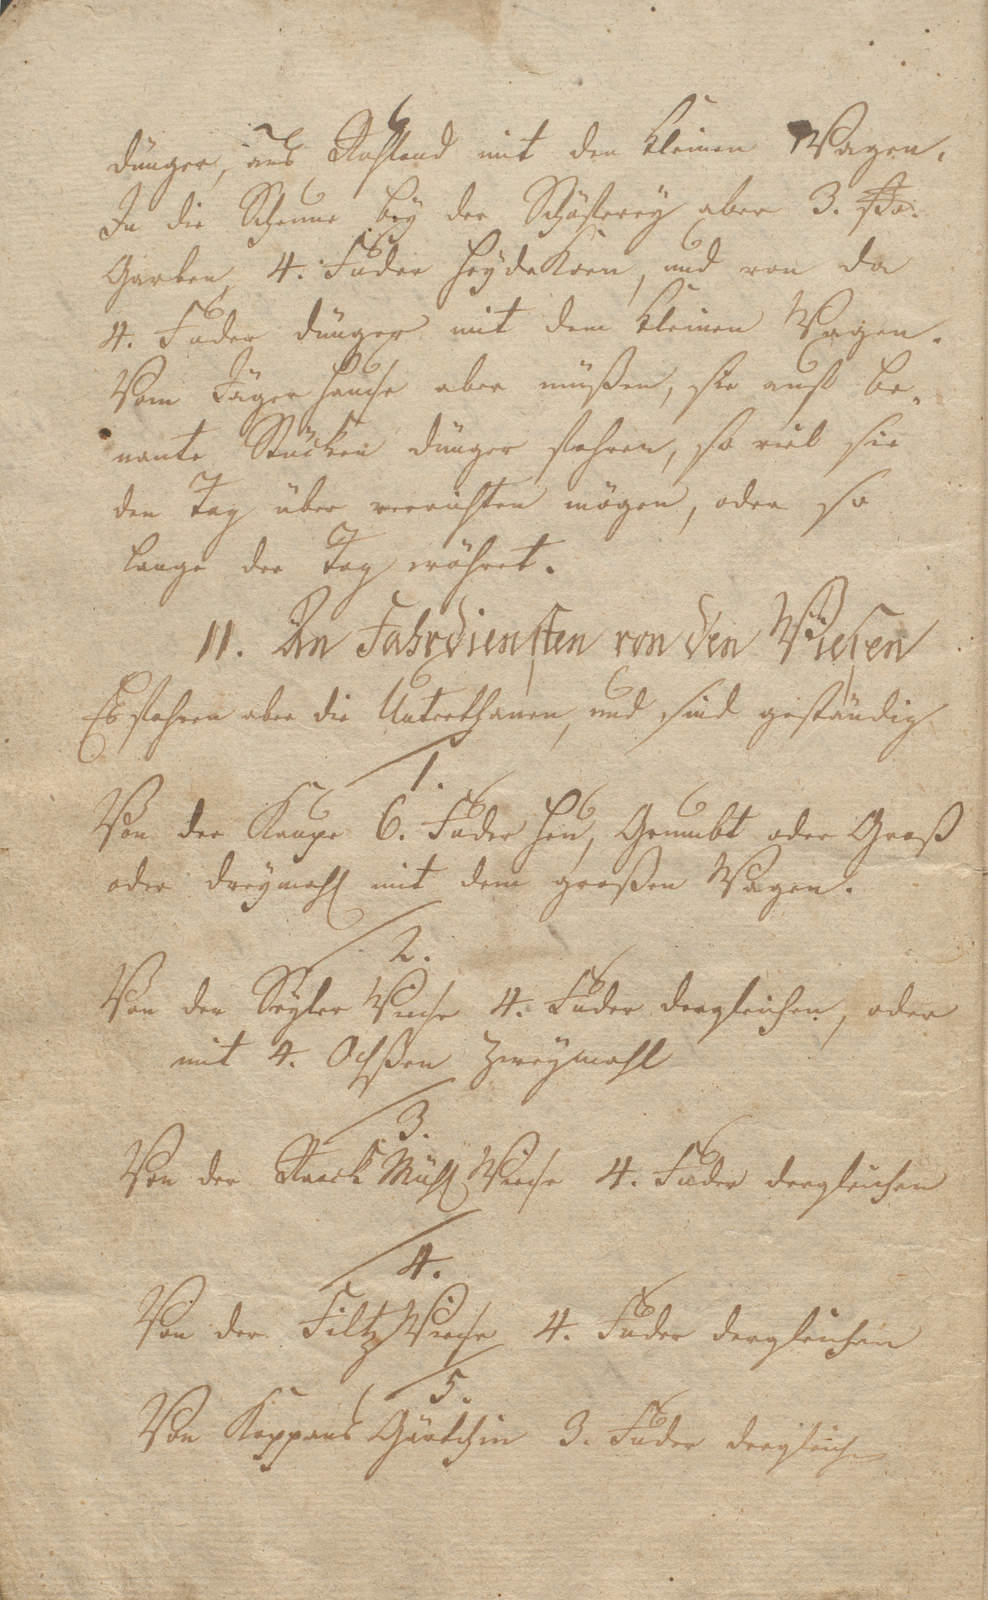 dünger, aus Ruhland mit den kleinen Wagen.
In die Scheune bey der Schäferey aber 3. ßo.
Garben, 4. Fuder Heydekorn, und von da
4. Fuder dünger mit dem kleinen Wagen.
Vom Jägerhauße aber müßen, sie auf be„
nante Stücken dünger fahren, so viel sie
den Tag über verrichten mögen, oder so
lange der Tag währet.
11. An Fahrdiensten von den Wiesen
Es fahren aber die Unterthanen, und sind geständig
1.
Von der Kaupe 6. Fuder Heu, Grumbt oder Graß
oder dreymahl mit dem großen Wagen.
2.
Von der Wiese 4. Fuder dergleichen, oder
mit 4. Ochßen zweymahl
3.
Von der Mühl Wiese 4. Fuder dergleichen
4.
Von der Filtz Wiese 4. Fuder dergleichen
5.
Von Koppans Gärtchin 3. Fuder dergleichen